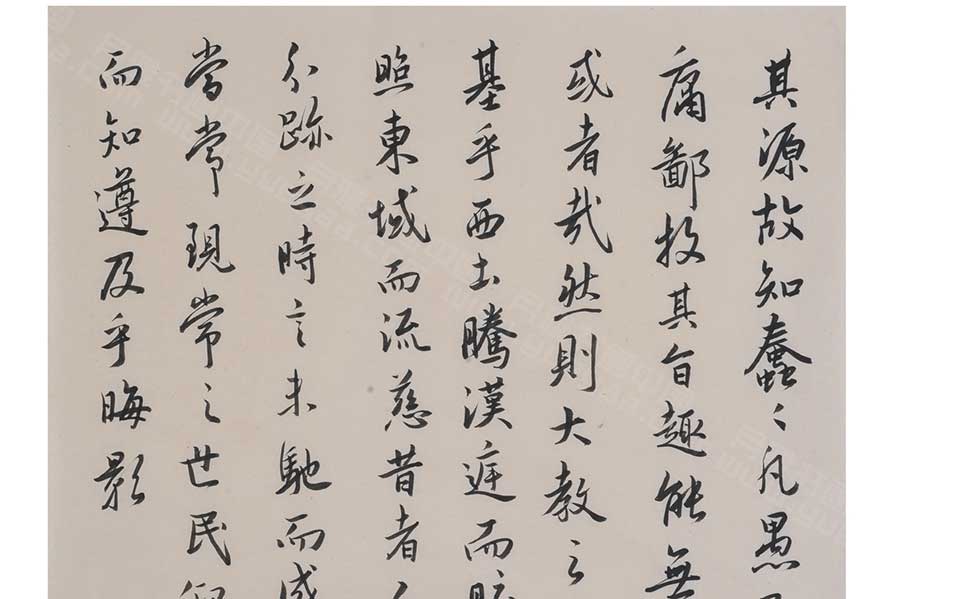 其源故知蠢〻凡愚
庸鄙投其旨趣能無
或者哉然則大教之
基乎西土騰漢庭而
照東域而流慈昔者
分跡之時言未馳而成
當常現常之世民仰
而知遵及乎晦影